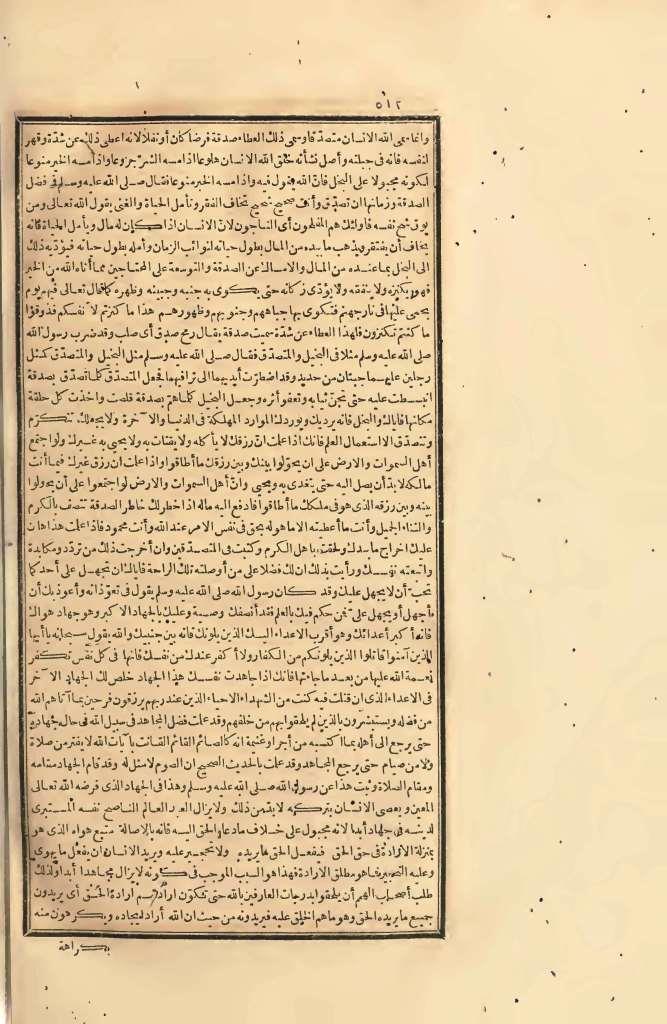 ٥١٢
وانما سمى الله الانسان متصدقا وسمى ذلك العطاء صدقة فرضا كان أو نفلا لانه اعطى ذلك عن شدة وقهر
لنفسه فانه فى جبلته وأصل نشأته خلق الله الانسان هلوعا اذا مسه الشر جزوعا واذا مسه الخير منوعا
لكونه مجبولا على البخل فان الله يقول فيه واذا مسه الخير منوعا فقال صلى الله عليه وسلم فى فضل
الصدقة وزمانها ان تصدق وأنت صحيح شحيح تخاف الفقر وتأمل الحياة والغنى يقول الله تعالى ومن
يوق شح نفسه فاولئك هم المفلحون أى الناجون لان الانسان اذا كان له مال ويأمل الحياة فانه
يخاف أن يفتقر ويذهب ما بيده من المال بطول حياته لنوائب الزمان وأمله بطول حياته فيؤديه ذلك
الى البخل بما عنده من المال والامساك عن الصدقة والتوسعة على المحتاجين مما أتاه الله من الخير
فهو يكنزه ولا ينفقه ولا يؤدى زكاته حتى يكوى به جنبه وجبينه وظهره كما قال تعالى فيهم يوم
يحمى عليها فى نار جهنم فتكوى بها جباههم وجنوبهم وظهورهم هذا ما كنزتم لأنفسكم فذوقوا
ما كنتم تكنزون فلهذا العطاء عن شدة سميت صدقة يقال رمح صدق أى صلب وقد ضرب رسول الله
صلى الله عليه وسلم مثلا فى البخيل والمتصدق فقال صلى الله عليه وسلم مثل البخيل والمتصدق كمثل
رجلين عليهما جبتان من حديد وقد اضطرت أيديهما الى تراقيهما فجعل المتصدق كلما تصدق بصدقة
انبسطت عليه حتى تجن ثيابه وتعفو أثره وجعل البخيل كلما هم بصدقة قلصت واخذت كل حلقة
مكانها فاياك والبخل فانه يرديك ويوردك الموارد المهلكة فى الدنيا والآخرة ولا يجملك تتكرم
وتتصدق الا استعمال العلم فانك اذا علمت ان رزقك لا يأكله ولا يقتات به ولا يحيى به غيرك ولو اجتمع
أهل السموات والارض على ان يحولوا بينك وبين رزقك ما أطاقوا واذا علمت ان رزق غيرك فيما أنت
مالكه لا بد أن يصل اليه حتى يتغدى به ويحيى وان أهل السموات والارض لو اجتمعوا على أن يحولوا
بينه وبين رزقه الذى هو فى ملكك ما أطاقوا فادفع اليه ماله اذا خطر لك خاطر الصدقة تتصف بالكرم
والثناء الجميل وأنت ما أعطيته الا ما هو له بحق فى نفس الامر عند الله وأنت محمود فاذا علمت هذا هان
عليك اخراج ما بيدك ولحقت باهل الكرم وكتبت فى المتصدقين وان أخرجت ذلك من تردد ومكابدة
واتبعته نفسك ورأيت بذلك ان لك فضلا على من أوصلته تلك الراحة فاياك ان تجهل على أحد كما
تحب أن لا يجهل عليك وقد كان رسول الله صلى الله عليه وسلم يقول فى تعوذاته وأعوذ بك أن
أجهل أو يجهل على فمن حكم فيك بالعلم فقد أنصفك وصية وعليك بالجهاد الاكبر وهو جهاد هواك
فانه أكبر أعدائك وهو أقرب الاعداء اليك الذين يلونك فانه بين جنبيك والله يقول سبحانه يا أيها
الذين آمنوا قاتلوا الذين يلونكم من الكفار ولا أكفر عندك من نفسك فانها فى كل نفس تكفر
نعمة الله عليها من بعد ما جاءتها فانك اذا جاهدت نفسك هذا الجهاد خلص لك الجهاد الآخر
فى الاعداء الذى ان قتلت فيه كنت من الشهداء الاحياء الذين عند ربهم يرزقون فرحين بما آتاهم الله
من فضله ويستبشرون بالذين لم يلحقوا بهم من خلفهم وقد علمت فضل المجاهد فى سبيل الله فى حال جهاده
حتى يرجع الى أهله بما اكتسبه من أجر أو غنيمة انه كالصائم القائم القانت بآيات الله لا يفتر من صلاة
ولا من صيام حتى يرجع المجاهد وقد علمت بالحديث الصحيح ان الصوم لا مثل له وقد قام الجهاد مقامه
ومقام الصلاة وثبت هذا عن رسول الله صلى الله عليه وسلم وهذا فى الجهاد الذى فرضه الله تعالى
المعين ويعصى الانسان بتركه لا بد من ذلك ولا يزال العبد العالم الناصح نفسه المستبرى
لدينه فى جهاد أبدا لانه مجبول على خلاف ما دعاه الحق اليه فانه بالاصالة متبع هواه الذى هو
بمنزلة الارادة فى حق الحق فيفعل الحق ما يريده ولا تحجير عليه ويريد الانسان ان يفعل ما يهوى
وعليه التحجير فما هو مطلق الارادة فهذا هو السبب الموجب فى كونه لا يزال مجاهدا أبدا ولذلك
طلب أصحاب الهمم أن يلحقوا بدرجات العارفين بالله حتى تكون ارادتهم ارادة الحق أى يريدون
جميع ما يريده الحق وهو ما هم الخلق عليه فيريدونه من حيث ان الله أراد ايجاده ويكرهون منه
بكراهة